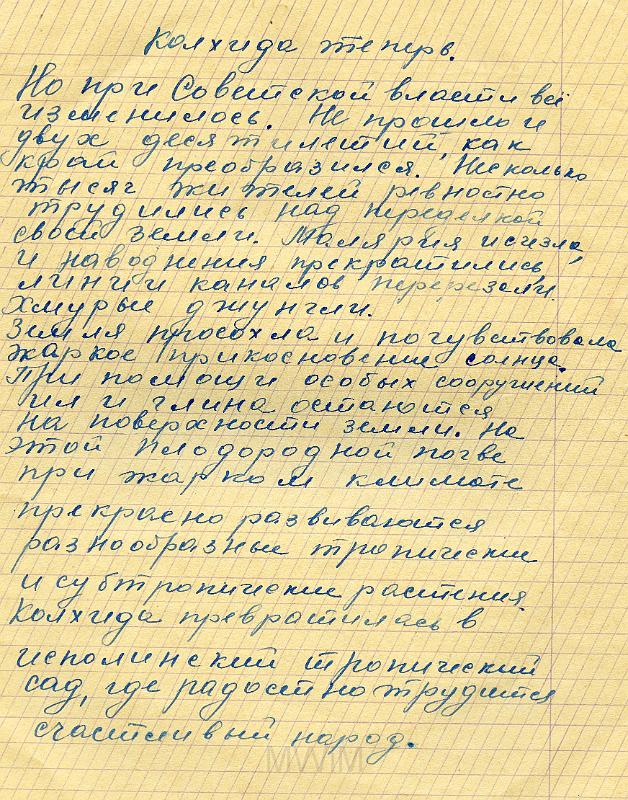 Колхида теперь.
Но при Советской власти всё
изменилось. Не прошло и
двух десятилетий, как
край преобразился. Несколько
тысяч жителей ревностно
трудились над переделкой
своей земли. Малярия исчезла,
и наводнения прекратились,
линии каналов перерезали
хмурые джунгли.
Земля просохла и почувствовала
жаркое прикосновение солнца.
При помощи особых сооружений
ил и глина остаются
на поверхности земли. На
этой плодородной почве
при жарком климате
прекрасно развиваются
разнообразные тропические
и субтропические растения.
Колхида превратилась в
исполинский тропический
сад, где радостно трудится
счастливый народ.
MWIM